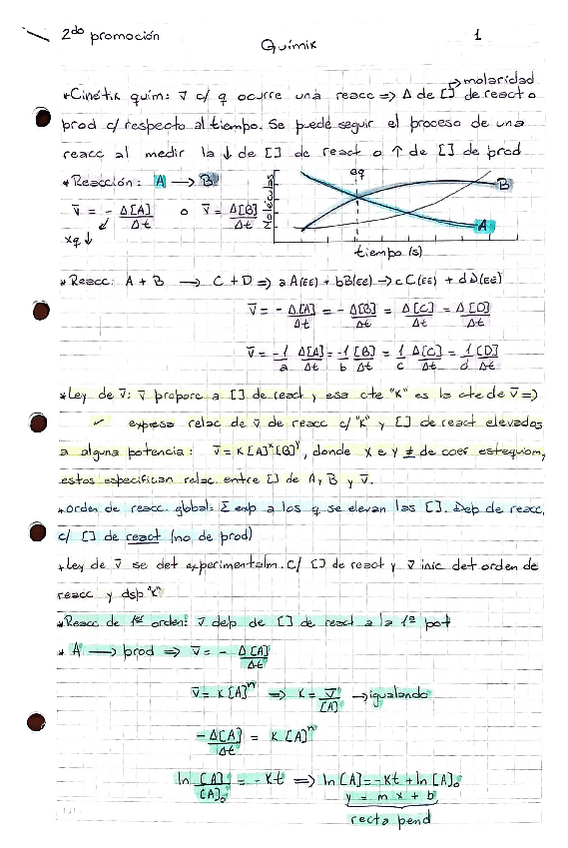 2do promoción
1
Químik
→ molaridad
*Cinétik quím: v̄ c/ q ocurre una reacc => Δ de [] de react o
prod c/ respecto al tiempo. Se puede seguir el proceso de una
reacc al medir la ↓ de [] de react o ↑ de [] de prod
*Reacción: A → B
v̄ = - Δ[A]/Δt o v̄ = Δ[B]/Δt
xq ↓
eq
B
A
tiempo (s)
*Reacc: A + B → C + D => aA(EE) + bB(EE) → cC(EE) + dD(EE)
v̄ = - Δ[A]/Δt = - Δ[B]/Δt = Δ[C]/Δt = Δ[D]/Δt
v̄ = -1/a Δ[A]/Δt = -1/b [B]/Δt = 1/c Δ[C]/Δt = 1/d [D]/Δt
*Ley de v̄: v̄ proporc a [] de react y esa cte "K" es la cte de v̄ =>
expresa relac de v̄ de reacc c/ "K" y [] de react elevadas
a alguna potencia: v̄ = K[A]^x[B]^y, donde x e y ≠ de coef estequiom,
estos especifican relac. entre [] de A, B y v̄.
*orden de reacc. global: Σ exp a los q se elevan las []. Dep de reacc.
c/ [] de react (no de prod)
*Ley de v̄ se det experimentalm. C/ [] de react y v̄ inic det orden de
reacc y dsp "K"
*Reacc de 1er orden: v̄ dep de [] de react a la 1ª pot
* A → prod => v̄ = - Δ[A]/Δt
v̄ = K[A]^n => K = v̄/[A] → igualando
-Δ[A]/Δt = K[A]^n
ln [A]/[A]₀ = -Kt => ln[A] = -Kt + ln[A]₀
y = m x + b
recta pend